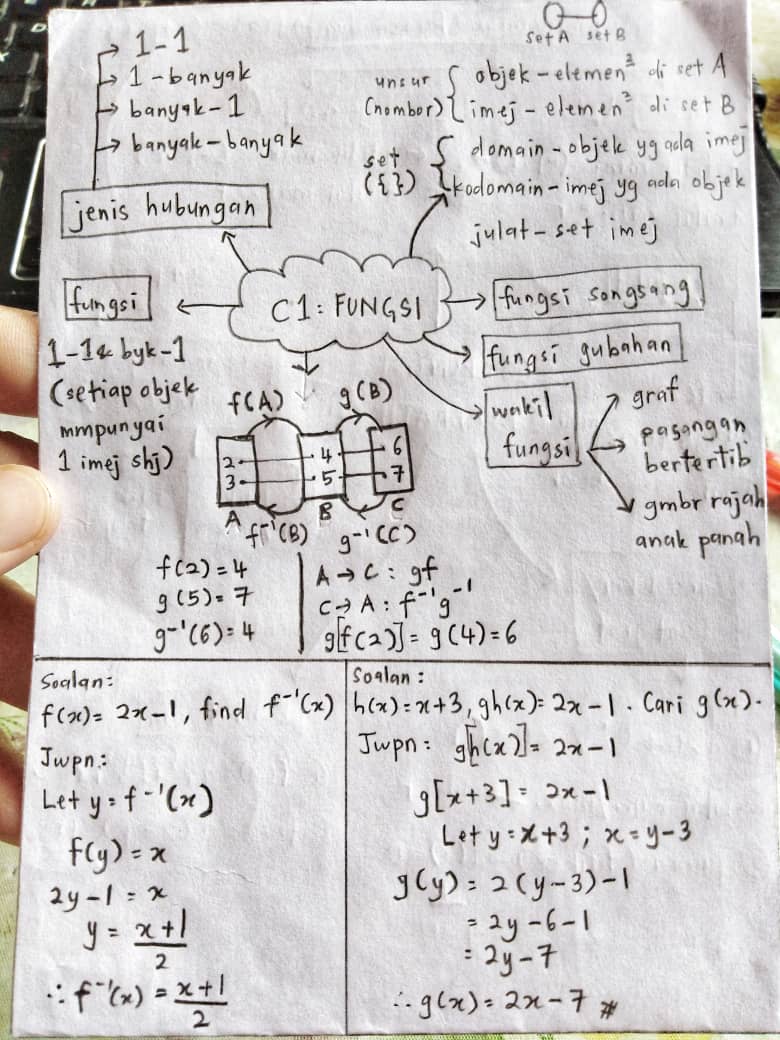 set A set B
1-1
1-banyak
banyak-1
banyak-banyak
jenis hubungan
unsur (nombor) { objek-elemen² di set A
imej-elemen² di set B
set ({ }) { domain-objek yg ada imej
kodomain-imej yg ada objek
julat-set imej
C1: FUNGSI
fungsi
1-1 & byk-1
(setiap objek
mmpunyai
1 imej shj)
fungsi songsang
fungsi gubahan
wakil
fungsi
graf
pasangan
bertertib
gmbr rajah
anak panah
f(A) g(B)
2 4 6
3 5 7
A B C
f⁻¹(B) g⁻¹(C)
f(2)=4
g(5)=7
g⁻¹(6)=4
A→C: gf
C→A: f⁻¹g⁻¹
g[f(2)]=g(4)=6
Soalan:
f(x)=2x-1, find f⁻¹(x)
Jwpn:
Let y=f⁻¹(x)
f(y)=x
2y-1=x
y=x+1/2
∴ f⁻¹(x)=x+1/2
Soalan:
h(x)=x+3, gh(x)=2x-1. Cari g(x).
Jwpn: g[h(x)]=2x-1
g[x+3]=2x-1
Let y=x+3; x=y-3
g(y)=2(y-3)-1
=2y-6-1
=2y-7
∴ g(x)=2x-7 #